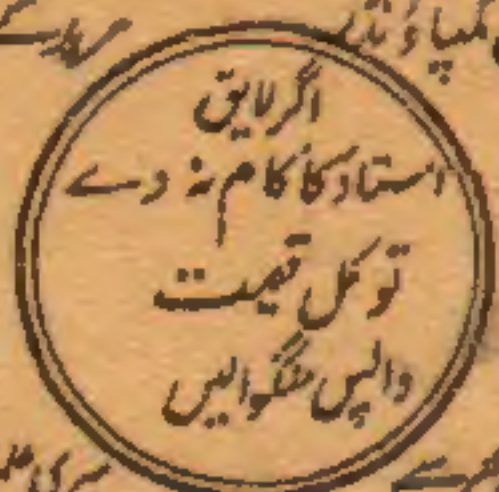 کمپاؤنڈر
اگر لایق
استاد کا کام نہ دے
تو کل قیمت
واپس منگوالیں